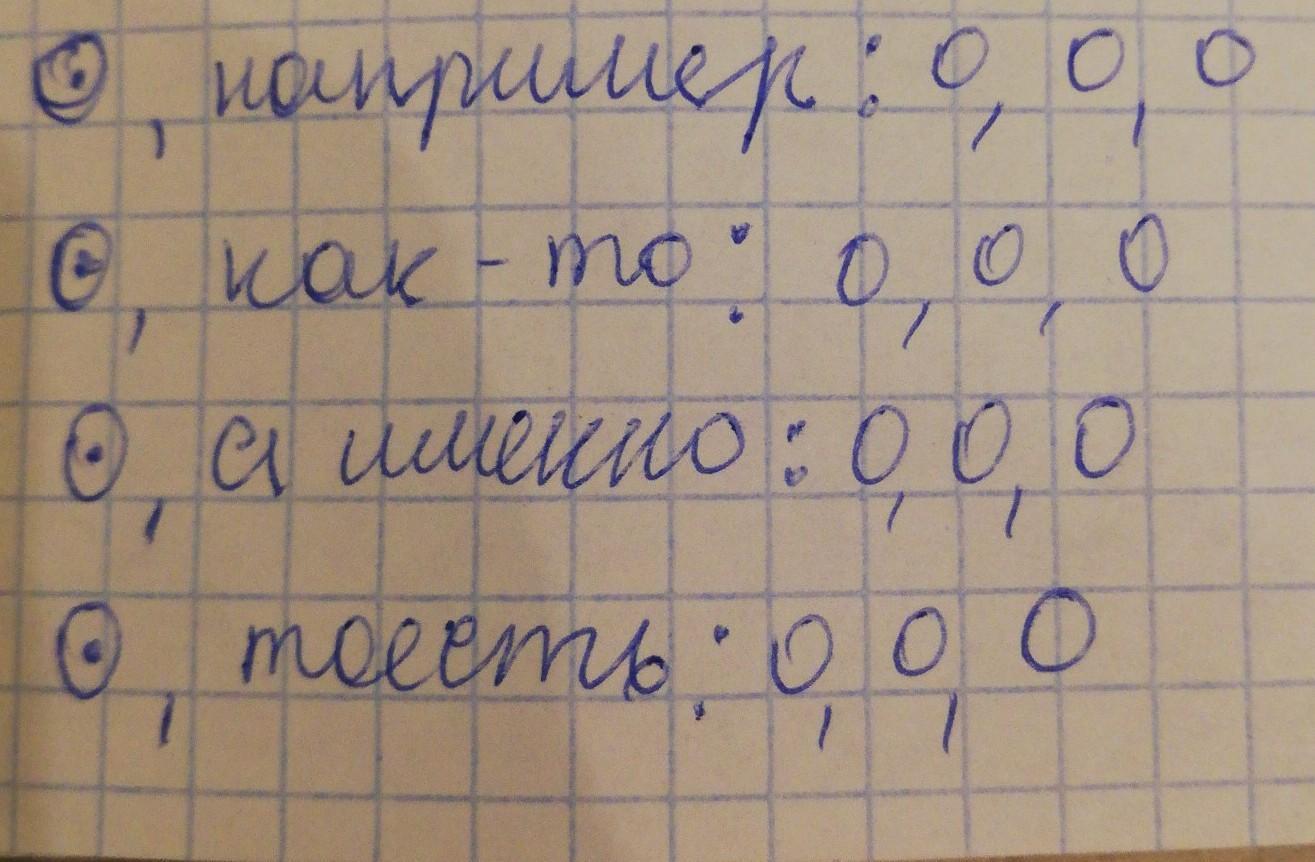 ⊙, например: О, О, О
⊙, как-то: О, О, О
⊙, а именно: О, О, О
⊙, тоесть: О, О, О